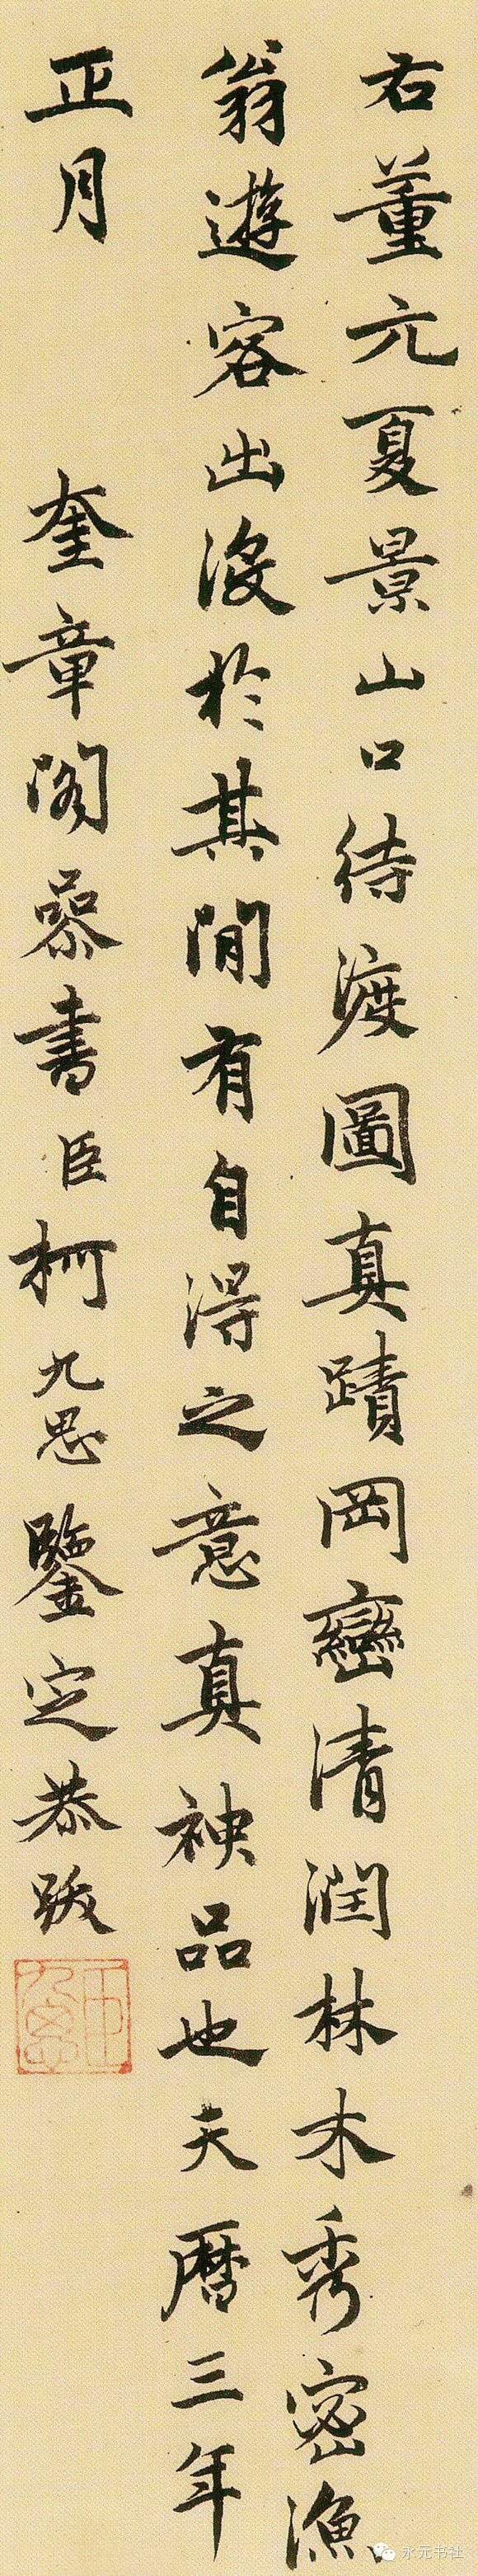 右董元夏景山口待渡圖真蹟岡巒清潤林木秀密漁
翁遊客出没於其間有自得之意真神品也天曆三年
正月　奎章閣參書臣柯九思鑒定恭跋
臣九思
永元书社